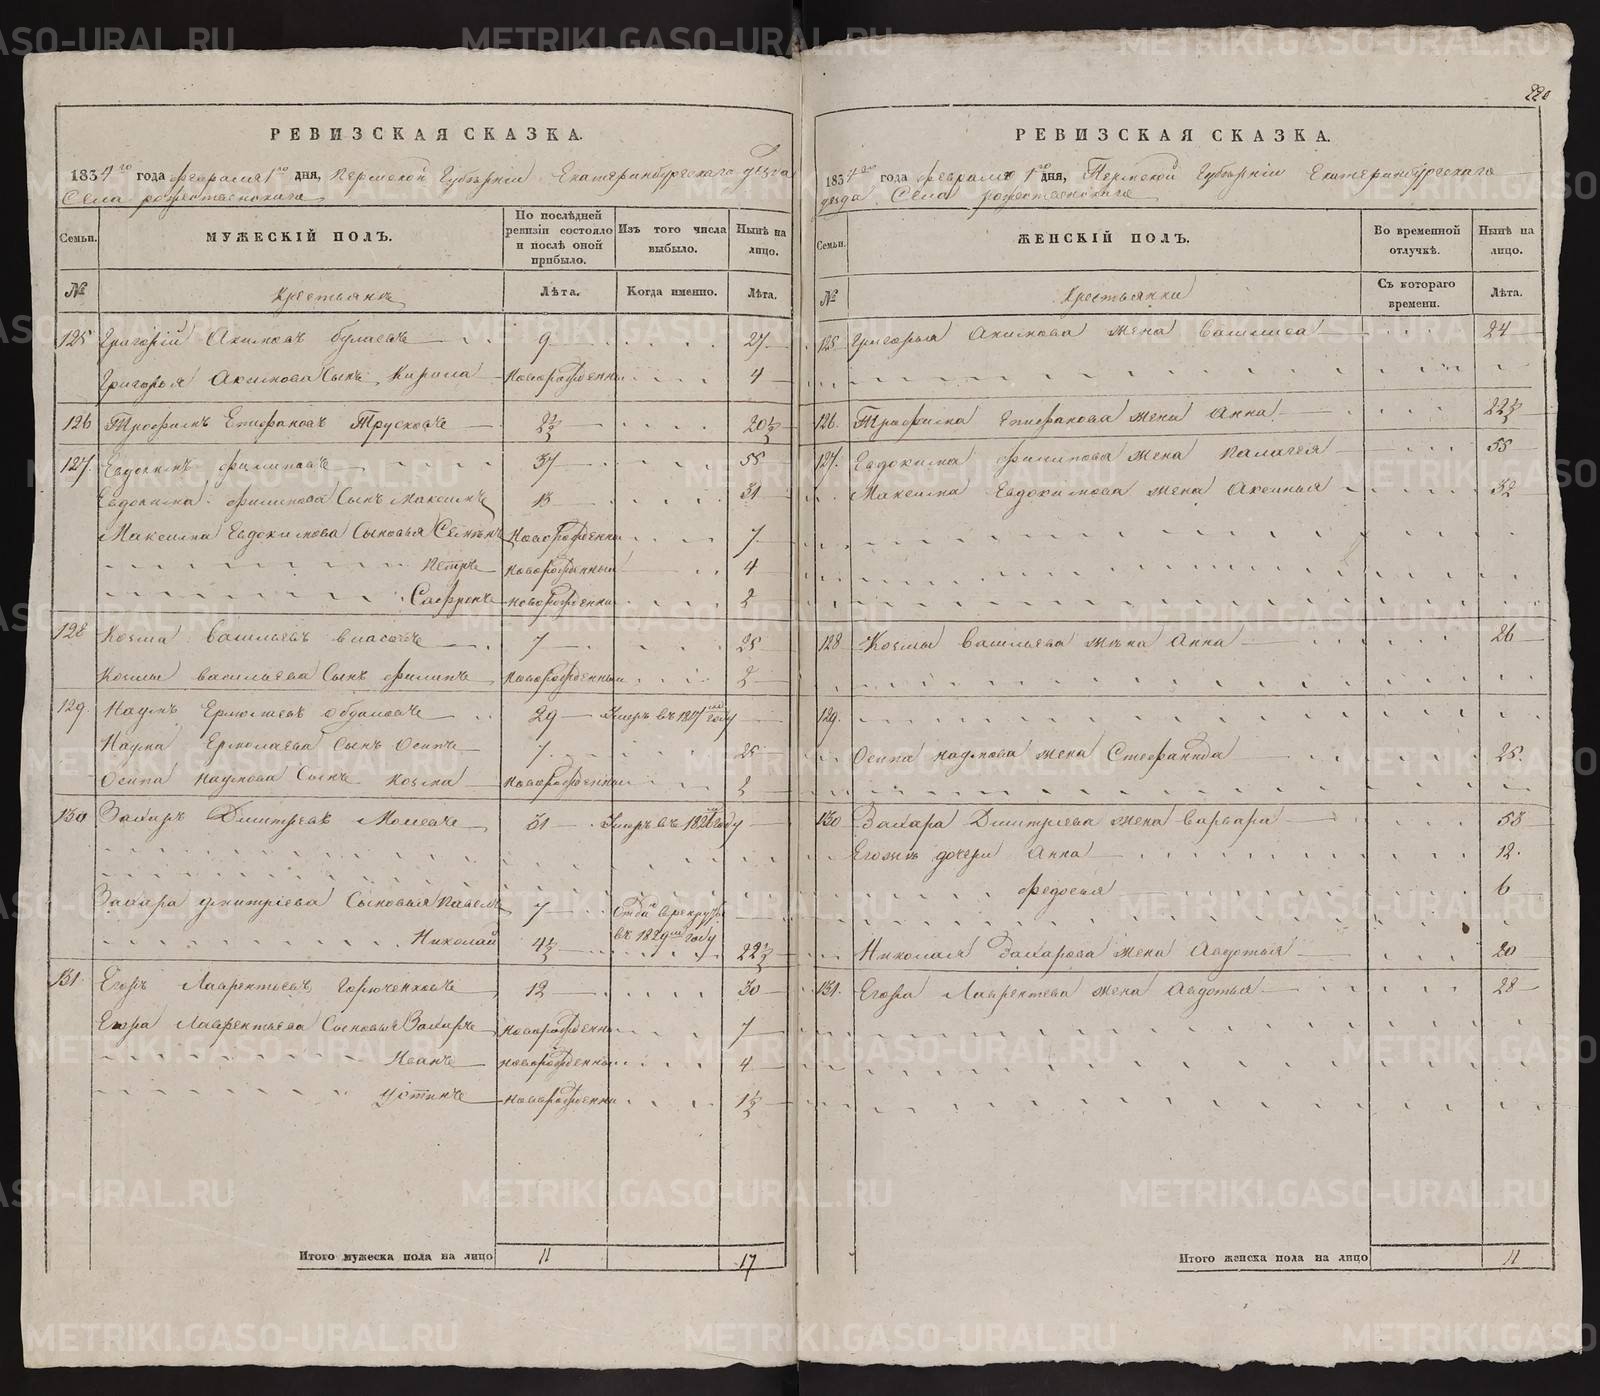 220
РЕВИЗСКАЯ СКАЗКА.
1834го года февраля 1го дня, Пермской Губернiи Екатеринбургскаго уезда
Села рожественскаго
Семьи. МУЖЕСКІЙ ПОЛЪ. По послѣдней ревизіи состояло и послѣ оной прибыло. Изъ того числа выбыло. Нынѣ на лицо.
№ Крестьянъ Лѣта. Когда именно. Лѣта.
125 Григорій Акимовъ 9 27
Григорья Акимова Сынъ Кирила новорожденны 4
126 Трофимъ Епифановъ 2½ 20½
127. Евдокимъ филиповъ 37 55
Евдокима филипова Сынъ Максимъ 13 31
Максима Евдокимова Сыновья Семенъ новорожденны 7
Петръ новорожденный 4
Сафронъ новорожденны 2
128 Козма Васильевъ власовъ 7 25
Козмы васильева Сынъ филипъ новорожденный 2
129. Наумъ Ермолаевъ 29 Умеръ въ 1817 году
Наума Ермолаева Сынъ Осипъ 7 25
Осипа наумова Сынъ Козма новорожденны 2
130 Захаръ Дмитріевъ 31 Умеръ въ году
Захара дмитріева Сыновья Павелъ 7 Отдан в рекруты
въ 1829м году
Николай 4½ 22½
131. Егоръ Лаврентьевъ 12 30
Егора Лаврентьева Сыновья Захаръ новорожденны 7
Иванъ новорожденный 4
Устинъ новорожденны 1½
Итого мужеска пола на лицо 11 17
РЕВИЗСКАЯ СКАЗКА.
1834го года февраля 1го дня, Пермской Губерніи Екатеринбургскаго
уезда Села рожественскаго
Семьи. ЖЕНСКІЙ ПОЛЪ. Во временной отлучкѣ. Нынѣ на лицо.
№ Крестьянки Съ котораго времени. Лѣта.
125 Григорья Акимова жена Василиса 24
126. Трофима Епифанова жена Анна 22½
127. Евдокима филипова жена Палагея 55
Максима Евдокимова жена Аксинья 32
128 Козмы Васильева жена Анна 26
129.
Осипа наумова жена Стефанида 25.
130 Захара Дмитріева жена Варвара 53
Егожъ дочери Анна 12.
федосья 6
Николая Захарова жена Авдотья 20
131. Егора Лаврентева жена Авдотья 28
Итого женска пола на лицо 11
METRIKI.GASO-URAL.RU